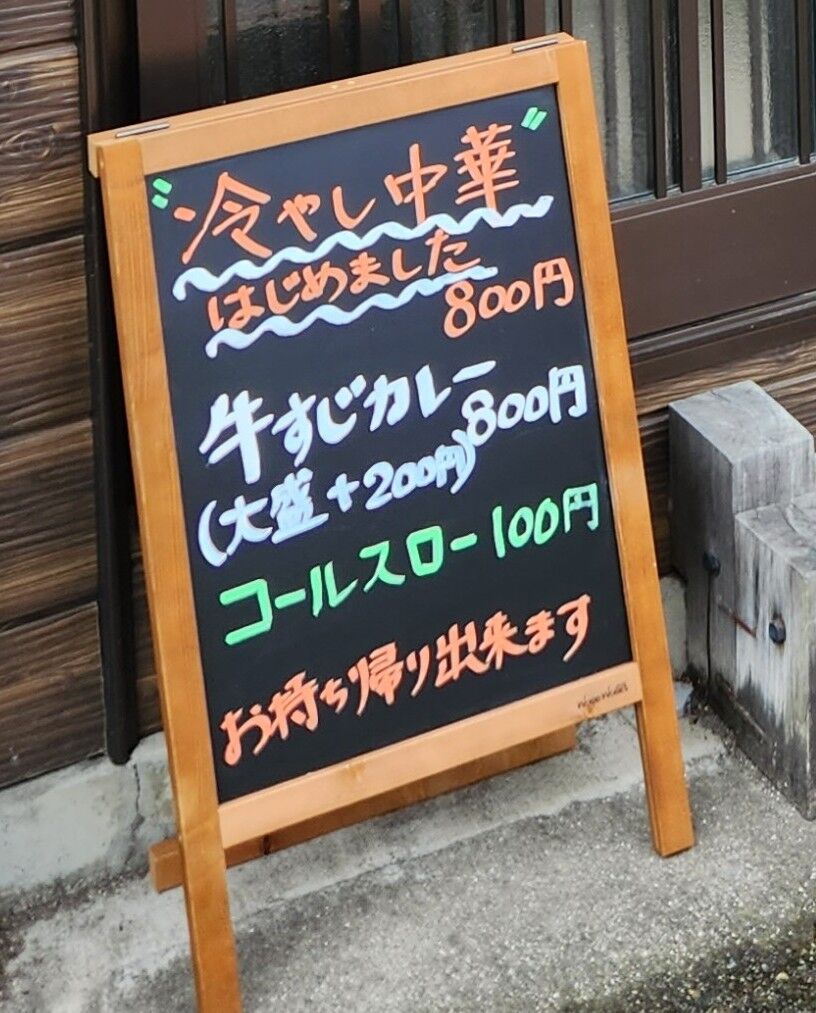 〝冷やし中華〟
はじめました
800円
牛すじカレー 800円
(大盛+200円)
コールスロー 100円
お持ち帰り出来ます